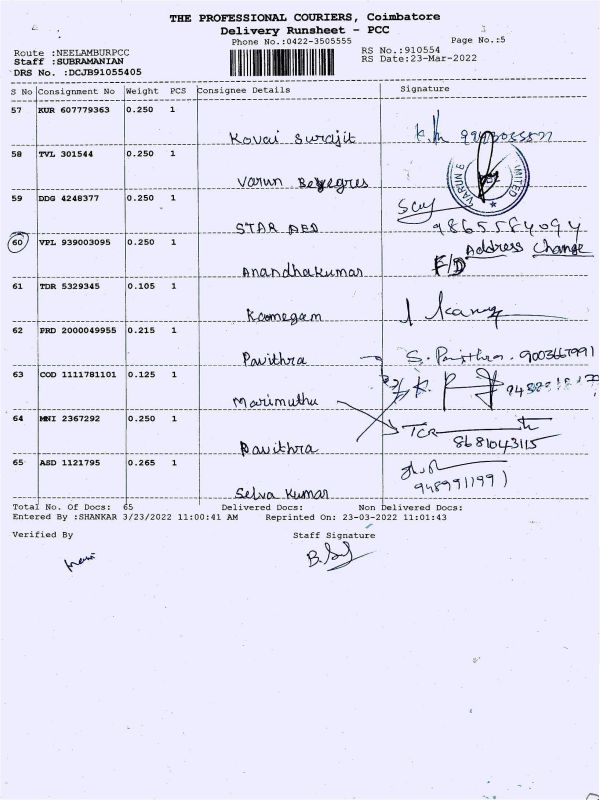 THE PROFESSIONAL COURIERS, Coimbatore
Delivery Runsheet - PCC
Phone No.:0422-3505555 Page No.:5
Route :NEELAMBURPCC RS No.:910554
Staff :SUBRAMANIAN RS Date:23-Mar-2022
DRS No. :DCJB91055405
S No Consignment No Weight PCS Consignee Details Signature
57 KUR 607779363 0.250 1
Kovai Surajit
58 TVL 301544 0.250 1
Varun
VARUN B ... IMITED
59 DDG 4248377 0.250 1
STAR
9865584094
60 VPL 939003095 0.250 1 Address Change
Anandhakumar F/D
61 TDR 5329345 0.105 1
Kamegam
62 PRD 2000049955 0.215 1
Pavithra S. Pavithra. 9003667991
63 COD 1111781101 0.125 1
Marimuthu
64 MNI 2367292 0.250 1 TCR
Pavithra 8681043115
65 ASD 1121795 0.265 1
Selva Kumar 9489911991
Total No. Of Docs: 65 Delivered Docs: Non Delivered Docs:
Entered By :SHANKAR 3/23/2022 11:00:41 AM Reprinted On: 23-03-2022 11:01:43
Verified By Staff Signature